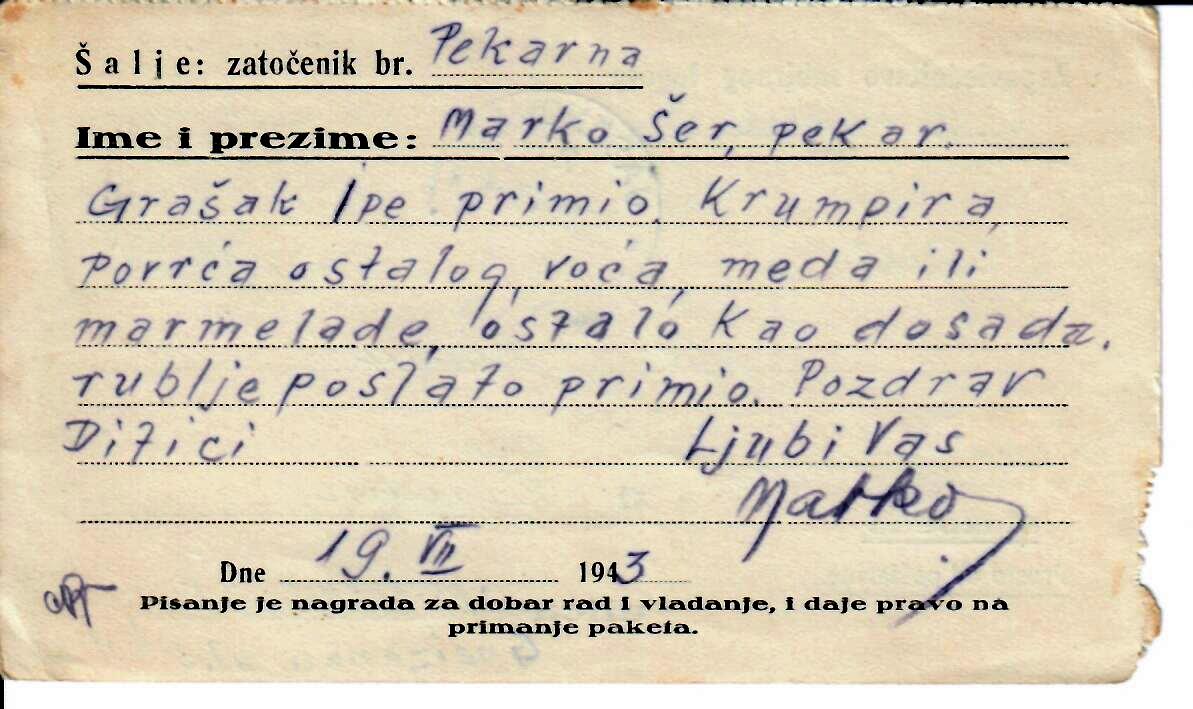 Šalje: zatočenik br. Pekarna
Ime i prezime: Marko Šer, pekar.
Grašak lpe primio. Krumpira,
povrća ostalog, voća, meda ili
marmelade, ostalo kao dosada.
rublje poslato primio. Pozdrav
Ditici Ljubi Vas
Marko
Dne 19. VII 1943
Pisanje je nagrada za dobar rad i vladanje, i daje pravo na
primanje paketa.